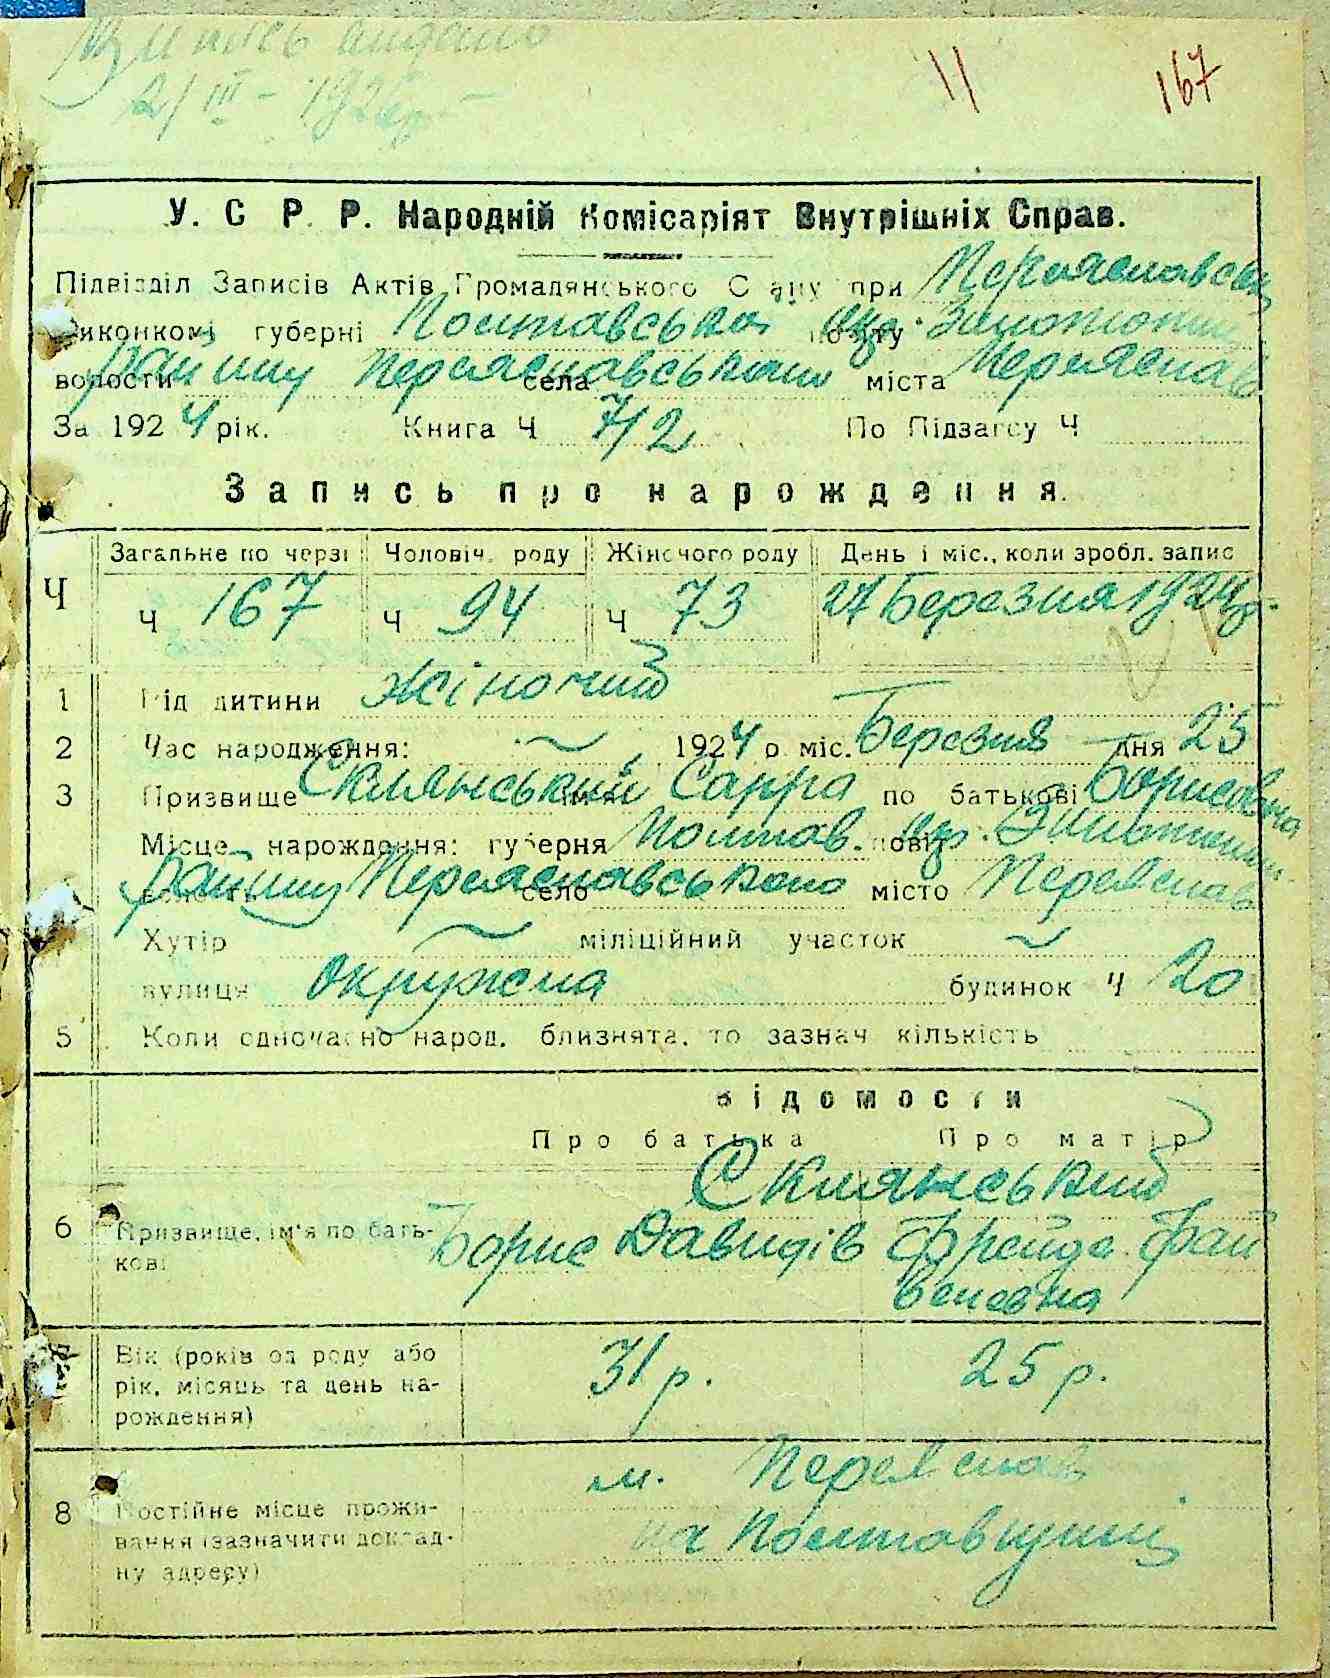 Випись видано
21/III - 1926р
11
167
У. С Р. Р. Народній Комісаріят Внутрішніх Справ.
Підвізділ Записів Актів Громадянського Стану при Переяславськ
Виконкомі губерні Полтавська повіту окр. Золотоніш
волости району Переяславського села міста Переяслав
За 1924 рік. Книга Ч 712 По Підзагсу Ч
Запись про нарождення.
Ч
Загальне по черзі Чоловіч. роду Жіночого роду День і міс., коли зробл. запис
Ч 167 Ч 94 Ч 73 27 Березня 1924р.
1 Рід дитини Жіночий
2 Час народження: 1924 о міс. Березня дня 25
3 Призвище Склянський імя Сарра по батькові Борисовна
Місце нарождення: губерня Полтав. повіт окр. Золотоніш
волость району Переяславського село місто Переяслав
Хутір міліційний участок
вулиця Окружна будинок Ч 20
5 Коли одночасно народ. близнята, то зазнач кількість
Відомости
Про батька Про матір
Склянський
6 Призвище, ім'я по бать- Борис Давидів Фрейда Фай
кові велевна
7 Вік (років од роду або 31 р. 25 р.
рік, місяць та день на-
рождення)
м. Переяслав
8 Постійне місце прожи-
вання (зазначити доклад- на Полтавщині
ну адресу)